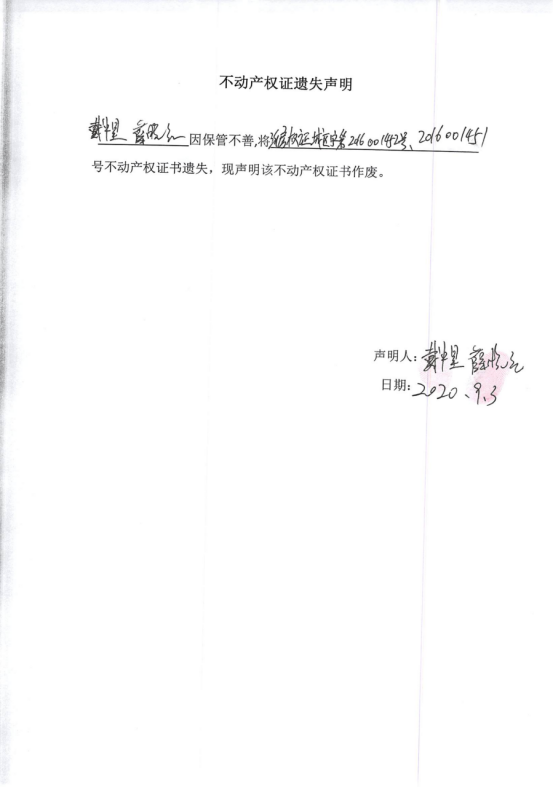 不动产权证遗失声明
因保管不善,将房权证城区字第2016001452号、2016001451
号不动产权证书遗失，现声明该不动产权证书作废。
声明人:
日期:2020、9.3